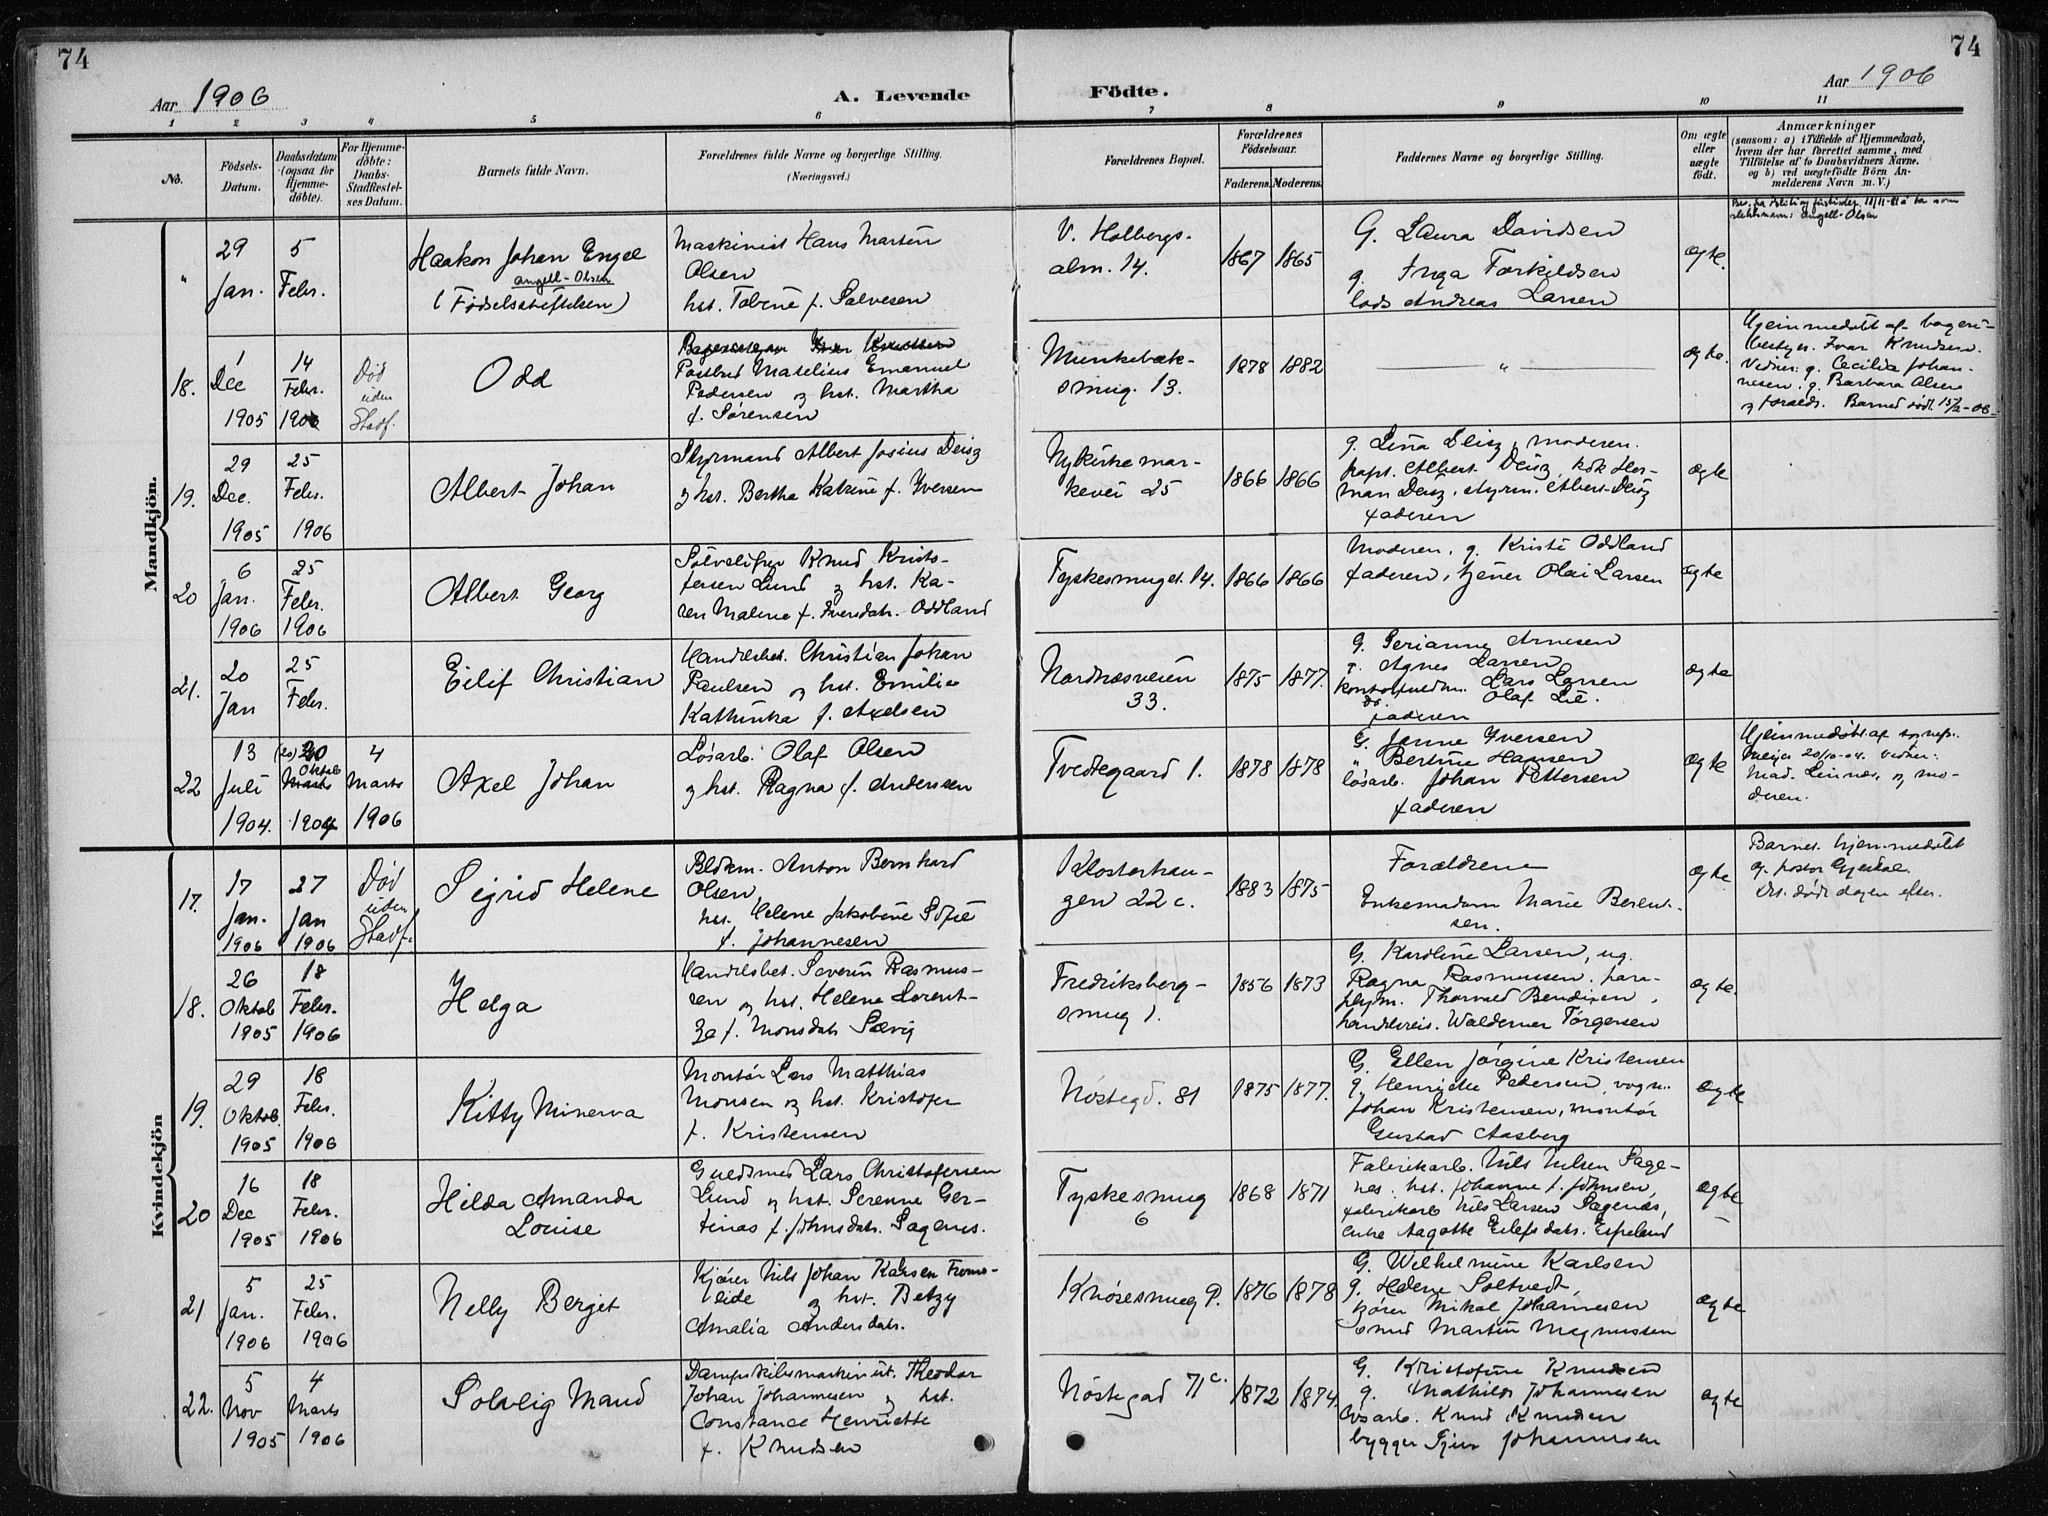 74
74
Aar 1906
A. Levende
Födte.
Aar 1906
1 2 3 4 5 6 7 8 9 10 11
No.
Födsels-
Datum.
Daabsdatum
(ogsaa for
Hjemme-
döbte).
For Hjemme-
döbte:
Daabs-
Stadfæstel-
ses Datum.
Barnets fulde Navn.
Forældrenes fulde Navne og borgerlige Stilling.
(Næringsvei.)
Forældrenes Bopæl.
Forældrenes
Födselsaar.
Faderens. Moderens.
Faddernes Navne og borgerlige Stilling.
Om ægte
eller
uægte
födt.
Anmærkninger
(saasom: a) i Tilfælde af Hjemmedaab,
hvem der har forrettet samme, med
Tilföielse af to Daabsvidners Navne,
og b) ved uægtefödte Börn An-
melderens Navn m. V.)
Mandkjön.
"
29
Jan.
5
Febr.
Haakon Johan Engel
Angell-Olsen
(Fødselsstiftelsen)
Maskinist Hans Martin
Olsen
hst. Tobine f. Salvesen
V. Holbergs-
alm. 14.
1867 1865
G. Laura Davidsen
g. Inga Torkildsen
lods Andreas Larsen
ægte.
slektsnavn: Angell-Olsen
18.
1
Dec
1905
14
Febr.
1906
Død
uden
Stadf.
Odd
Postbud Matelius Emanuel
Pedersen og hst. Martha
f. Sørensen
Munkebæk-
smug. 13.
1878 1882
"
ægte.
Hjemmedøbt af bageri-
bestyr. Ivar Knudsen.
Vidner: g. Cecilia Johan-
nesen, g. Barbara Olsen
og foræld. Barnet død 15/2-06
19.
29
Dec.
1905
25
Febr.
1906
Albert Johan
Styrmand Albert Josius Deisz
og hst. Bertha Katrine f. Iversen
Nykirkemar-
kevei 25
1866 1866
g. Lina Deisz, moderen.
kapt. Albert Deisz, kok Her-
man Deisz, styrm. Albert Deisz
faderen
ægte
20
6
Jan.
1906
25
Febr.
1906
Albert Georg
Knud Kristo-
fersen Lund og hst. Ka-
ren Malene f. Iversdatr. Oddland
Tyskesmuget. 14.
1866 1866
Moderen, g. Kristi Oddland
faderen, tjener Olai Larsen
ægte
21.
20
Jan
25
Febr.
Eilif Christian
Handelsbet. Christian Johan
Paulsen og hst. Emilie
Kathinka f. Axelsen
Nordnæsveien
33.
1875 1877.
G. Serianne Arnesen
g. Agnes Larsen
Lars Larsen
do. Olaf Lie.
faderen
ægte
22
13
Juli
1904.
20
Oktob
1904
4
Marts
1906
Axel Johan
Løsarb. Olaf Olsen
og hst. Ragna f. Anderssen
Tvedtegaard 1.
1878 1878
G. Jenne Iversen
" Bertine Hansen
løsarb. Johan Pettersen
faderen
ægte
Hjemmedøbt af sognepr.
Meyer 20/10-04. vidner:
Mad. Linnæs og mo-
deren.
Kvindekjön
17.
17
Jan.
1906
27
Jan
1906
Død
uden
Stadf.
Sigrid Helene
Blikm. Anton Bernhard
Olsen
hst. Helene Jakobine Sofie
f. Johannesen
Klosterhau-
gen 22 c.
1883 1875
Forældrene
Enkemadam Marie Berent-
sen.
ægte.
Barnet hjemmedøbt
af pastor Gjesdal.
Det døde dagen efter.
18.
26
Oktob
1905
18
Febr.
1906
Helga
Handelsbet. Severin Rasmus-
sen og hst. Helene Lorent-
ze f. Monsdatr Sævig
Fredriksberg-
smug 1.
1856 1873
G. Karoline Larsen, ug.
Ragna Rasmussen, para-
plym. Thorvald Bendixen,
handelsreis. Waldemar Torgersen
ægte.
19.
29
Oktob.
1905
18
Febr.
1906
Kitty Minerva
Montør Lars Matthias
Monsen og hst. Kristofer
f. Kristensen
Nøstegd. 81
1875 1877.
G. Ellen Jørgine Kristensen
g. Henricke Pedersen, vogn.
Johan Kristensen, montør
Gustad Aasberg
ægte
20
16
Dec
1905
18
Febr.
1906
Hilda Amanda
Louise
Guldsmed Lars Christofersen
Lund og hst. Serenne Ger-
tinas f. Johnsdatr. Sagenes.
Tyskesmug
6
1868 1871
Fabrikarb. Nils Nilsen Sage-
nes. hst. Johanne f. Johnsen,
fabrikarb Nils Larsen Sagenæs,
enke Aagotte Eilefsdatr. Espeland
ægte
21
5
Jan.
1906
25
Febr.
1906
Nelly Berget
Kjører Nils Johan Karsen Frøms-
eide og hst. Betzy
Amalia Andersdatr.
Knøsesmug 9.
1876 1878
G. Wilhelmine Karlsen
g. Helene Soltvedt,
kjører Mikal Johannesen
smed Martin Magnussen
ægte
22.
5
Nov
1905
4
Marts
1906
Solveig Maud
Dampskibsmaskinist. Theodor
Johan Johannesen og hst.
Constance Henriette
f. Knudsen
Nøstegad 71c.
1872 1874.
G. Kristofine Knudsen
g. Mathilde Johannesen
løsarb. Knud Knudsen
brygger Johannesen
ægte